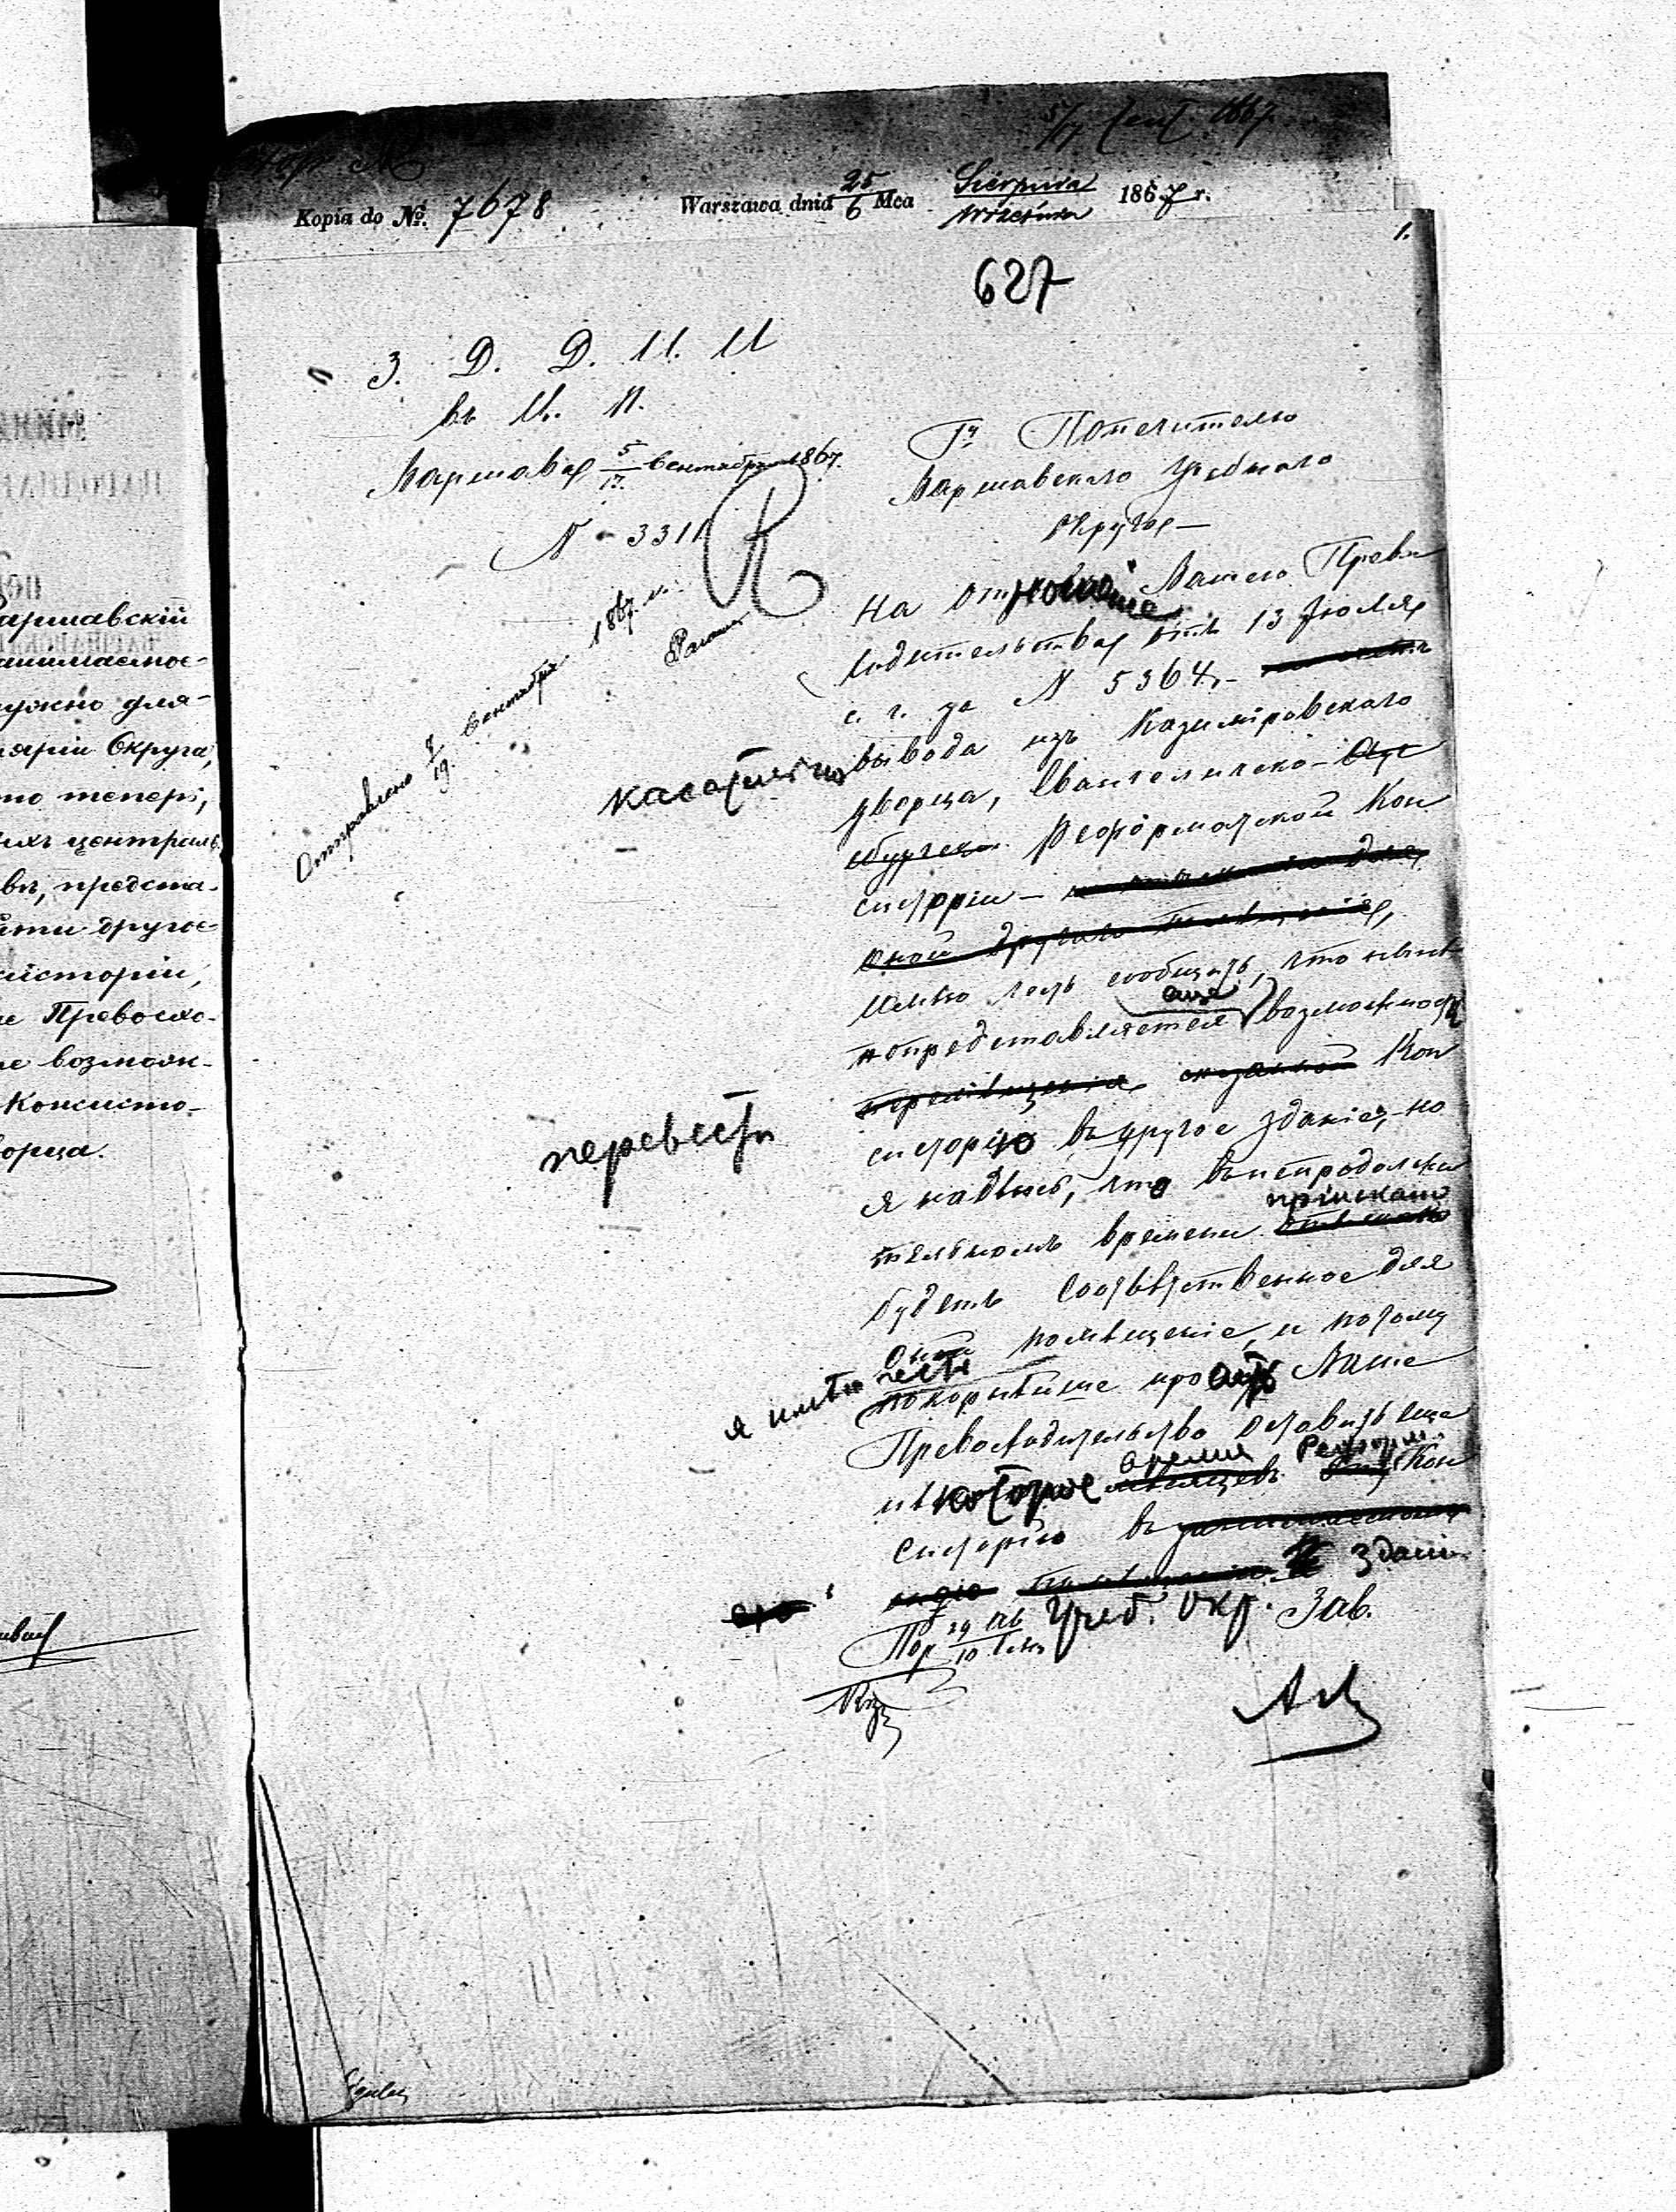 5/17 Сент 1867
Kopia do №. 7678 Warszawa dnia 25/6 Mca Sierpnia/Września 1867 r.
1.
627
З. Д. Д. И. И
въ Ц. П.
Варшава 5/17 Сентября 1867.
№ 3311
Отправлено 7/19 Сентября 1867 г.
Гну Попечителю
Варшавскаго Учебнаго
Округа—
На отношение Вашего Прево
сходительства отъ 13 Июля
с. г. за № 5364,—
касательно вывода изъ Казимировскаго
дворца, Евангелическо- Аус
бургско Реформатской Кон
систоріи—
оной другаго помѣщенія,
имѣю честь сообщить, что нынѣ
не представляется еще возможности
перевести перемѣщенія сказанной Кон
систорію въ другое зданіе, но
я надѣюсь, что въ непродолжи
тельномъ времени пріискано
будетъ соотвѣтственное для
оной помѣщеніе, и потому
я имѣю честь покорнѣйше просить Ваше
Превосходительство оставить еще
нѣкоторое время мѣсяцевъ Реформ. Кон
систорію въ занимаемомъ
ею помѣщеніи зданіи
Учеб. Окр. Зав.
Пор 29 Ав/10 Сен
аршавскій
нимаемое-
ужно для-
ляріи Округа,
но теперь,
ихъ централь
вѣ, предста-
йти другое-
систоріи,
е Превосхо-
е возмож-
Консисто-
орца.